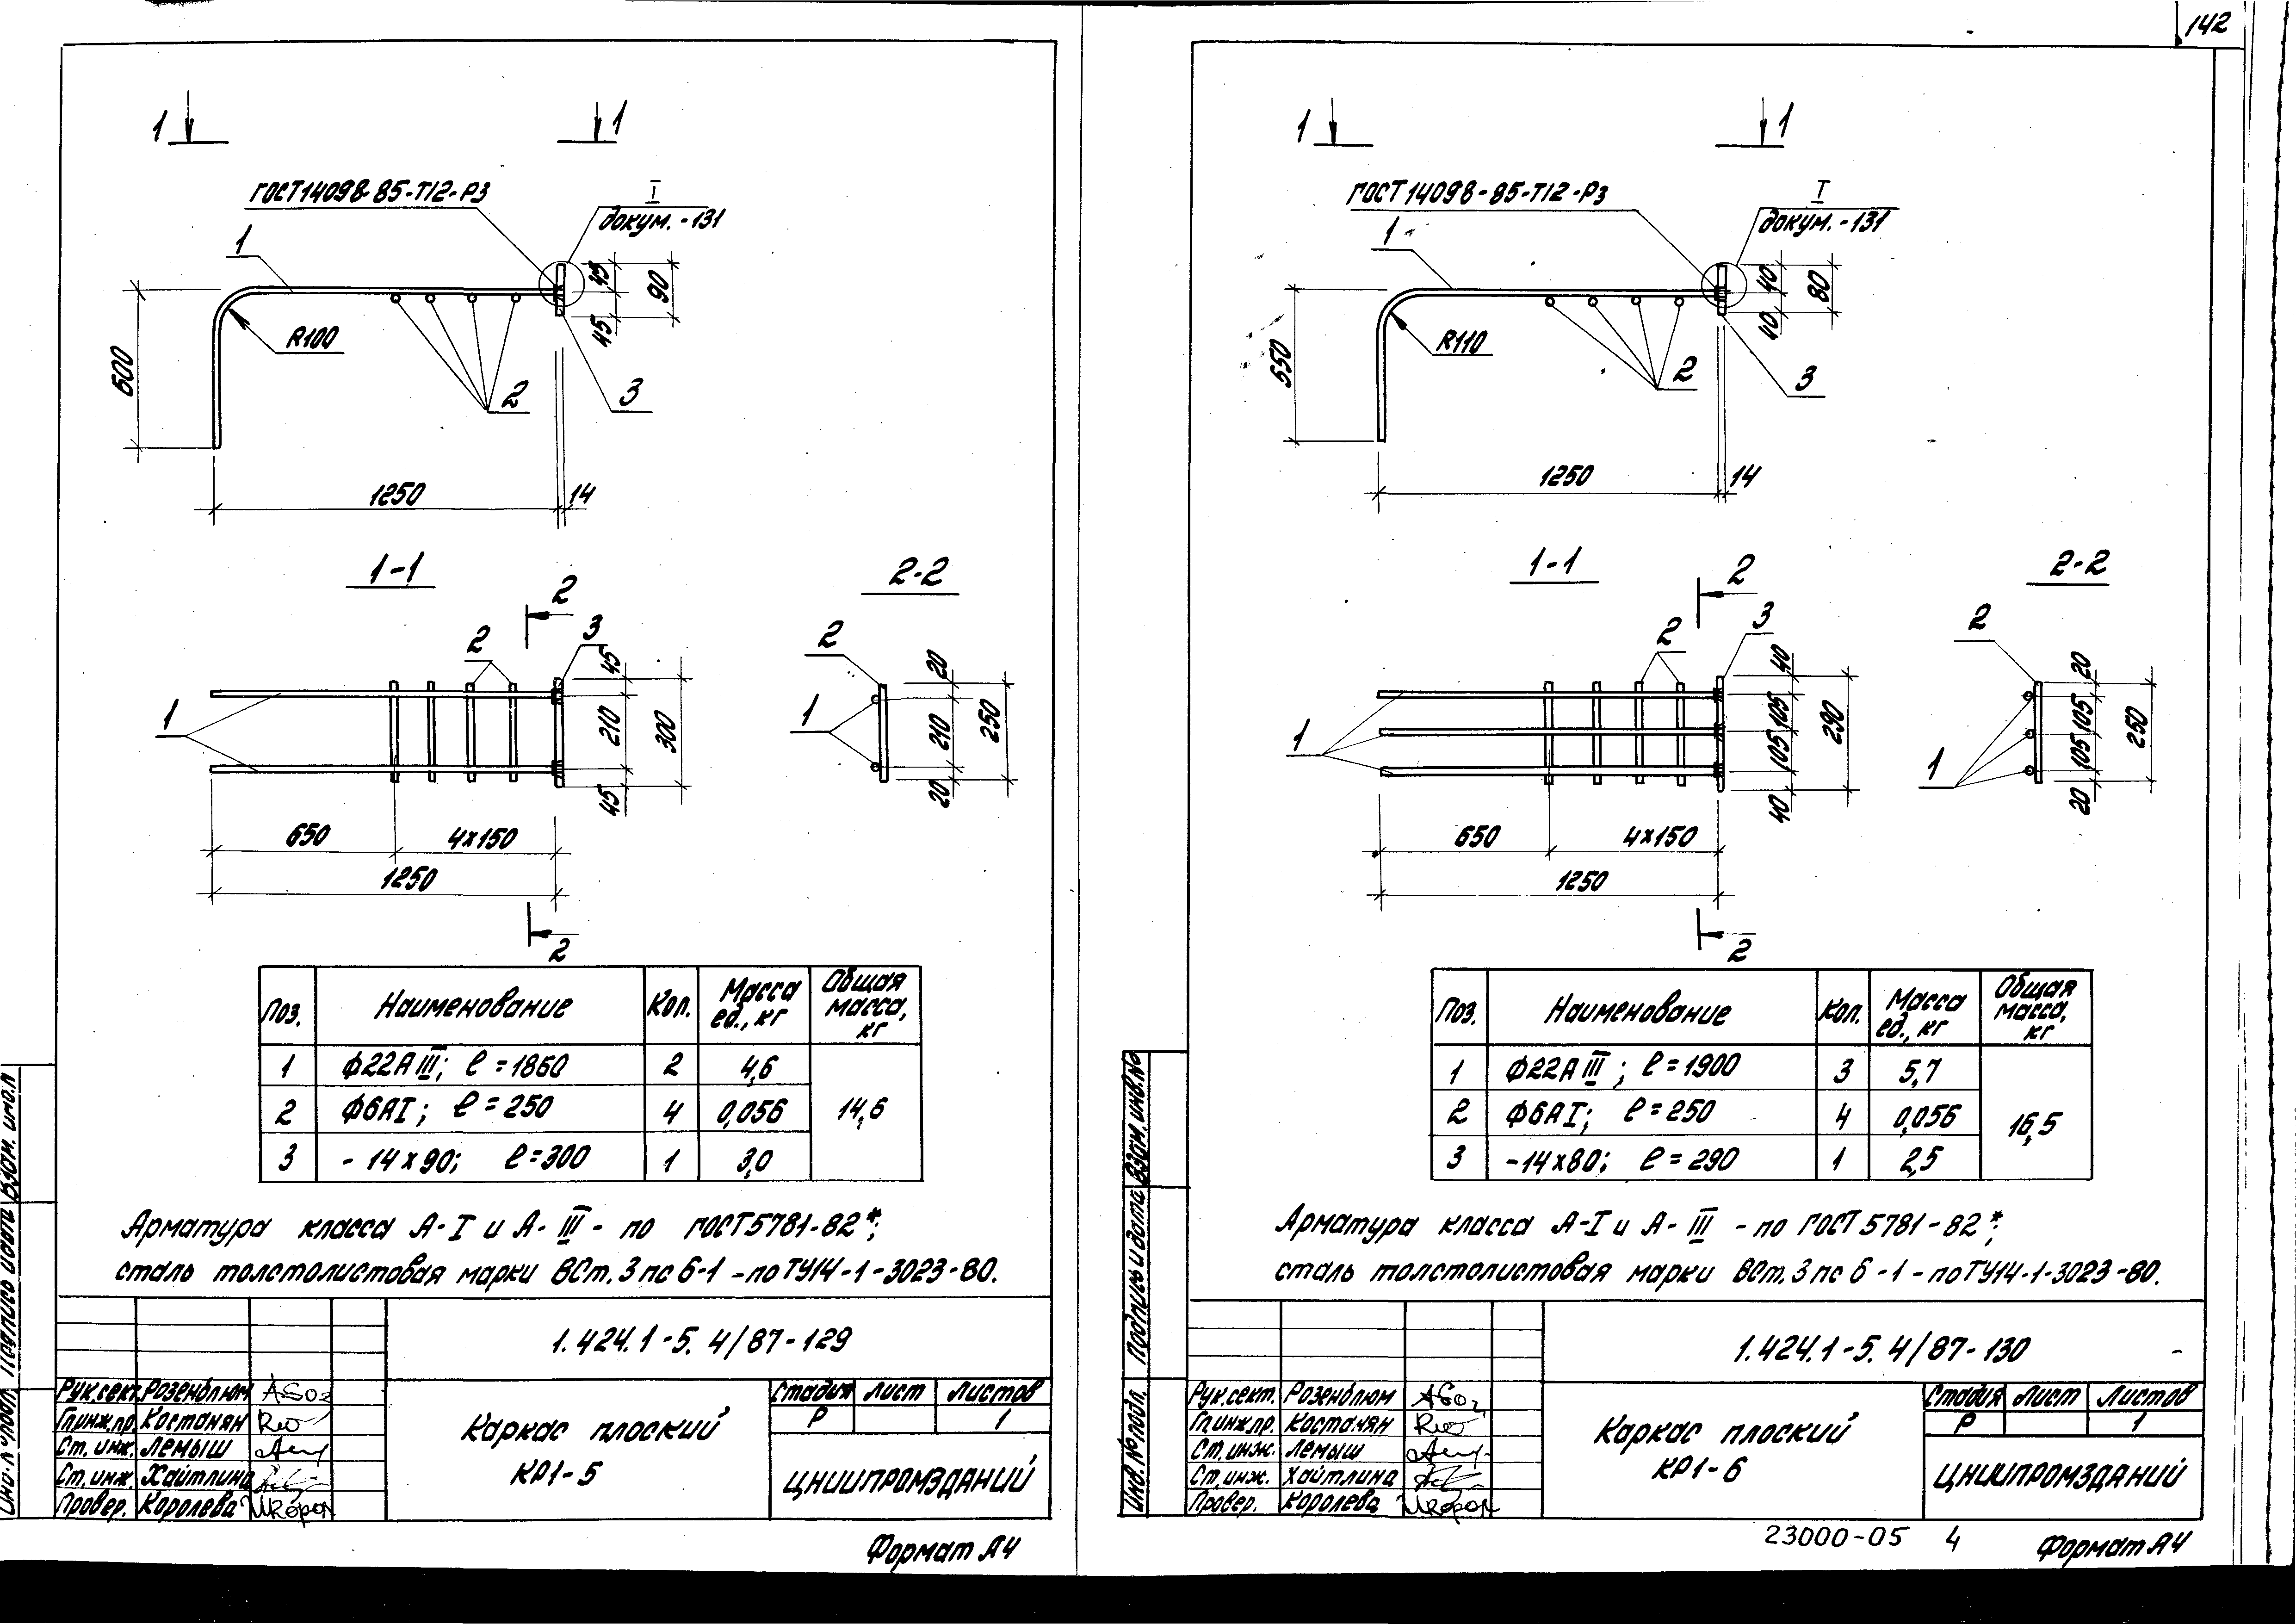 142
1
1
ГОСТ14098-85-Т12-Р3
I
докум.-131
1
45
90
45
R100
600
2
3
1250
14
1-1
2
2-2
2
3
45
210
300
45
1
650
4х150
1250
2
2
1
20
210
250
20
Поз.
Наименование
Кол.
Масса ед., кг
Общая масса, кг
1 ф22АIII; ℓ=1860 2 4,6
2 ф6АI; ℓ=250 4 0,056 14,6
3 -14х90; ℓ=300 1 3,0
Арматура класса А-I и А-III - по ГОСТ5781-82*;
сталь толстолистовая марки ВСт.3пс6-1 -по ТУ14-1-3023-80.
1.424.1-5.4/87-129
Рук.сект. Розенблюм
Гл.инж.пр. Костанян
Ст.инж. Лемыш
Ст.инж. Хайтлина
Провер. Королева
Каркас плоский
КР1-5
Стадия Лист Листов
Р 1
ЦНИИПРОМЗДАНИЙ
Формат А4
1
1
ГОСТ14098-85-Т12-Р3
I
докум.-131
1
40
80
40
R110
550
2
3
1250
14
1-1
2
2-2
2
3
40
105
105
290
40
1
650
4х150
1250
2
2
1
20
105
105
250
20
Поз.
Наименование
Кол.
Масса ед., кг
Общая масса, кг
1 ф22АIII; ℓ=1900 3 5,7
2 ф6АI; ℓ=250 4 0,056 16,5
3 -14х80; ℓ=290 1 2,5
Арматура класса А-I и А-III -по ГОСТ 5781-82*;
сталь толстолистовая марки ВСт.3пс6-1-по ТУ14-1-3023-80.
Инв.№подл. Подпись и дата Взам.инв.№
1.424.1-5.4/87-130
Рук.сект. Розенблюм
Гл.инж.пр. Костанян
Ст.инж. Лемыш
Ст.инж. Хайтлина
Провер. Королева
Каркас плоский
КР1-6
Стадия Лист Листов
Р 1
ЦНИИПРОМЗДАНИЙ
23000-05 4
Формат А4